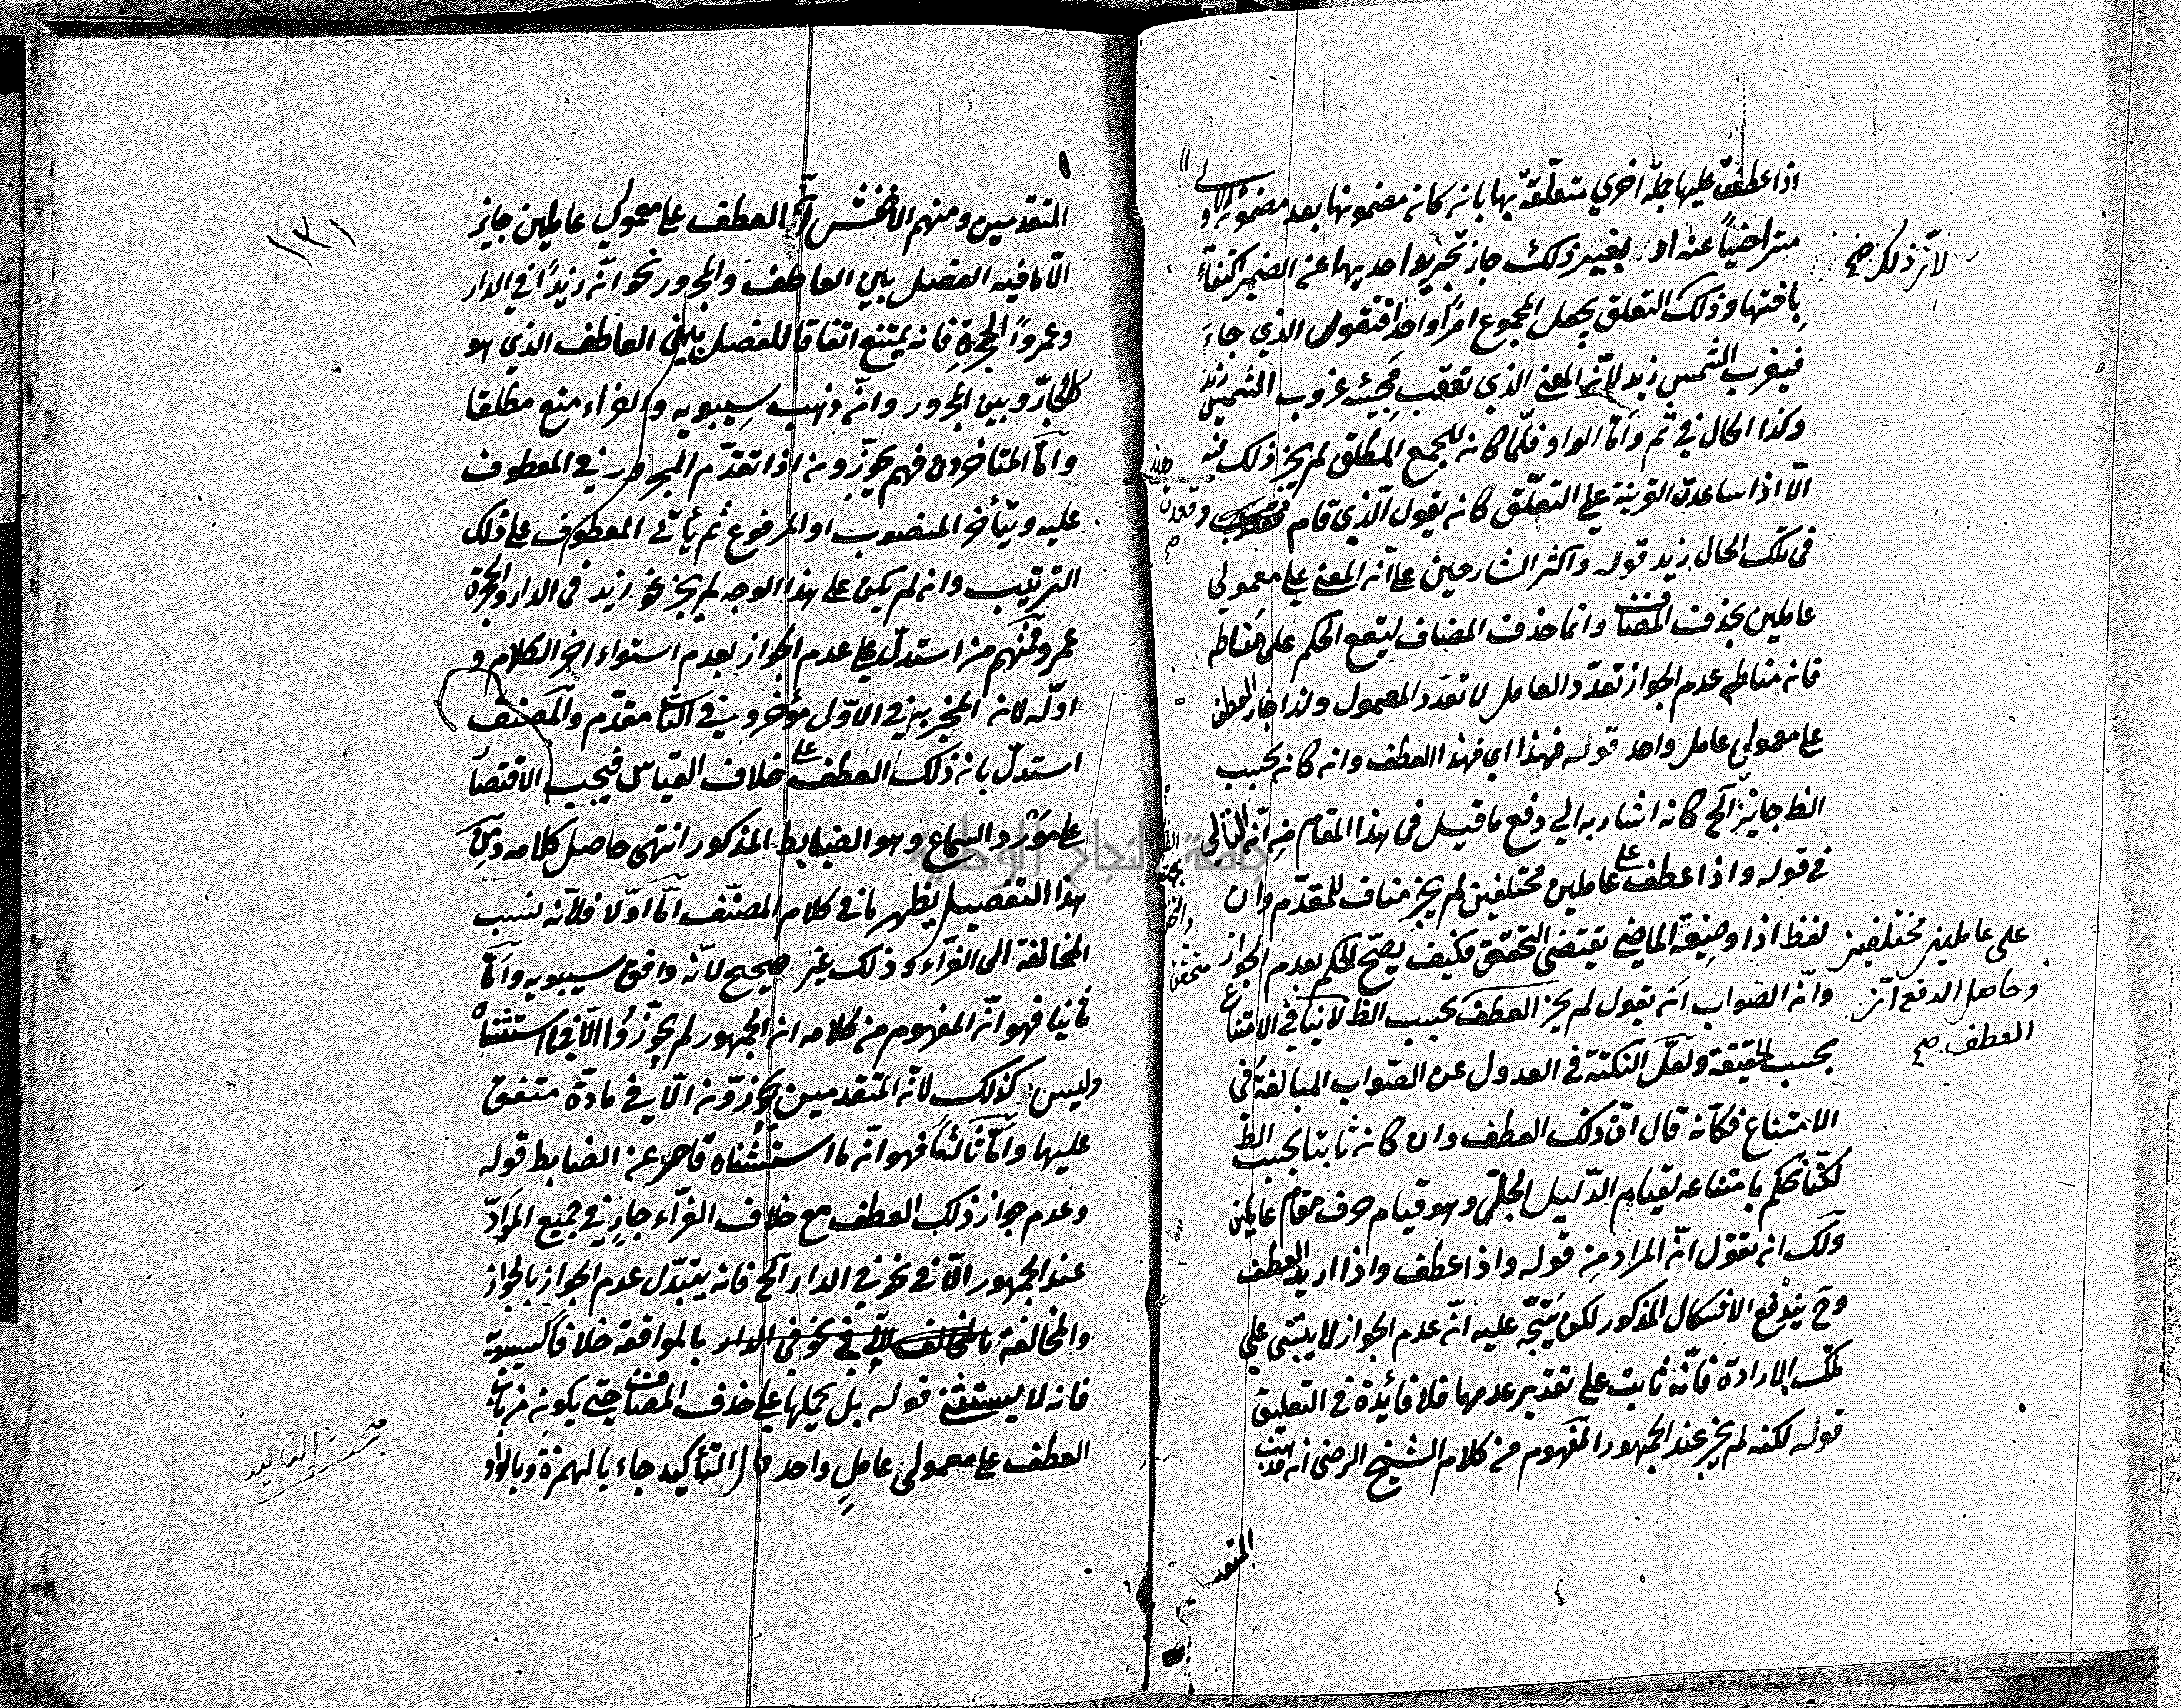 اذا عطفت عليها جملة اخرى متعلقة بها بان كان مضمونها بعد مضمون الاولى
متراخيا عنه او بغير ذلك جاز تجريد احديهما عن الضمير اكتفاء
باختها وذلك التعلق يجعل المجموع امرا واحدا فتقول الذي جاء
فيغرب الشمس زيد لان المعنى الذي تعقب مجيئه غروب الشمس زيد
وكذا الحال في ثم وامّا الواو فلمّا كان للجمع المطلق لم يجز ذلك فيه
الّا اذا ساعدت القرينة على التعلّق كان يقول الّذي قام وقعدت هند
في تلك الحال زيد قوله واكثر الشارحين على انه المعنى على معمولي
عاملين بحذف المضاف وانما حذف المضاف ليقع الحكم على مناطه
فان مناط عدم الجواز تعدّد العامل لا تعدد المعمول ولذا جاز العطف
على معمولي عامل واحد قوله فهذا اي فهذا العطف وان كان بحسب
الظ جايز الخ كانه اشار به الى دفع ما قيل في هذا المقام من انّ التالي
في قوله واذا عطف على عاملين مختلفين لم يجز مناف للمقدّم وان
لفظ اذا وصيغة الماضي يقتضي التحقق فكيف يصحّ الحكم بعدم الجواز
وانّ الصواب ان يقول لم يجز العطف بحسب الظ لا ينافي الامتناع
بحسب الحقيقة ولعلّ النكتة في العدول عن الصّواب المبالغة في
الامتناع فكانّه قال انّ ذلك العطف وان كان ثابتا بحسب الظ
لكنّا نحكم بامتناعه لقيام الدّليل الجلي وهو قيام حرف مقام عاملين
ولك ان تقول انّ المراد من قوله واذا عطف واذا اريد العطف
وح يندفع الاشكال المذكور لكن يتّجه عليه انّ عدم الجواز لا يبتني على
تلك الارادة فانّه ثابت على تقدير عدمها فلا فائدة في التعليق
قوله لكنه لم يجز عند الجمهور المفهوم من كلام الشيخ الرضي ان مذهب
المتقد
لانّ ذلك صح
على عاملين مختلفين
وحاصل الدفع انّ
العطف صح
١٣١
المتقدمين ومنهم الاخفش انّ العطف على معمولي عاملين جايز
الّا ما فيه الفصل بين العاطف والمجرور نحو انّ زيدا في الدار
وعمروا الحجرة فانه يمتنع اتفاقا للفصل بين العاطف الذي هو
كالجارّ وبين المجرور وانّه ذهب سيبويه والفراء منع مطلقا
وامّا المتاخرون فهم يجوّزون اذا تقدّم المجرور في المعطوف
عليه ويتأخر المنصوب او المرفوع ثم يأتي المعطوف على ذلك
الترتيب وان لم يكن على هذا الوجه لم يجز نحو زيد في الدار والحجرة
عمرو فمنهم من استدلّ على عدم الجواز بعدم استواء اخر الكلام و
اوّله لان المخبر به في الاوّل مؤخر وفي الثاني مقدّم والمصنف
استدلّ بان ذلك العطف على خلاف القياس فيجب الاقتصار
على مورد السماع وهو الضابط المذكور انتهى حاصل كلامه ومن
هذا التفصيل يظهر ما في كلام المصنّف امّا اوّلا فلانّه نسب
المخالفة الى الفرّاء وذلك غير صحيح لانّه وافق سيبويه وامّا
ثانيا فهو انّ المفهوم من كلامه ان الجمهور لم يجوّزوا الّا فيما استثناه
وليس كذلك لانّ المتقدمين يجوّزونه الّا في مادّة متفق
عليها وامّا ثالثا فهو انّ ما استثناه قاصر عن الضابط قوله
وعدم جواز ذلك العطف مع خلاف الفرّاء جار في جميع الموادّ
عند الجمهور الّا في نحو في الدار الخ فانه يتبدّل عدم الجواز بالجواز
والمخالفة بالموافقة خلافا لسيبويه
فانه لا يستثنى قوله بل يحملها على حذف المضاف حتى يكون من باب
العطف على معمولي عامل واحد قال التأكيد جاء بالهمزة وبالواو
مبحث التأكيد